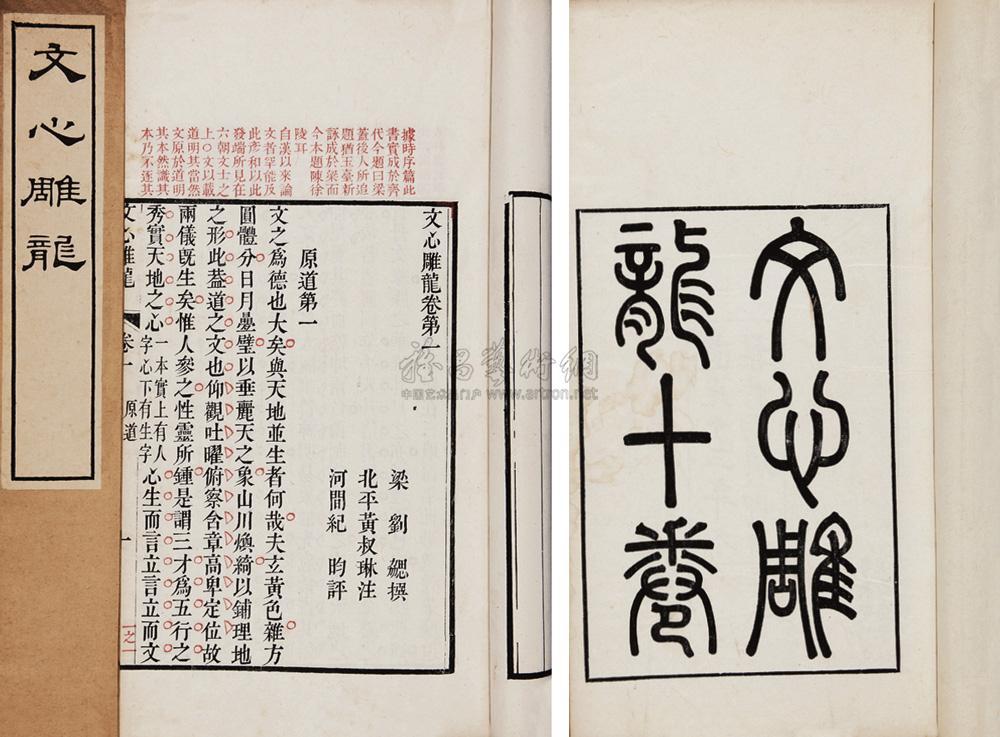 文心雕龍
據時序篇此
書實成於齊
代今題曰梁
蓋後人所追
題猶玉臺新
詠成於梁而
今本題陳徐
陵耳
自漢以來論
文者罕能及
此彥和以此
發端所見在
六朝文士之
上○文以載
道明其當然
文原於道明
其本然識其
本乃不逐其
文心雕龍卷第一
梁劉勰撰
北平黃叔琳注
河間紀昀評
原道第一
文之爲德也大矣與天地並生者何哉夫玄黃色雜方
圓體分日月疊璧以垂麗天之象山川煥綺以鋪理地
之形此葢道之文也仰觀吐曜俯察含章高卑定位故
兩儀旣生矣惟人參之性靈所鍾是謂三才爲五行之
秀實天地之心一本實上有人
字心下有生字
心生而言立言立而文
文心雕龍 卷一 原道 一
一之一
文心雕
龍十卷
雅昌藝術網
中国艺术品门户 www.artron.net